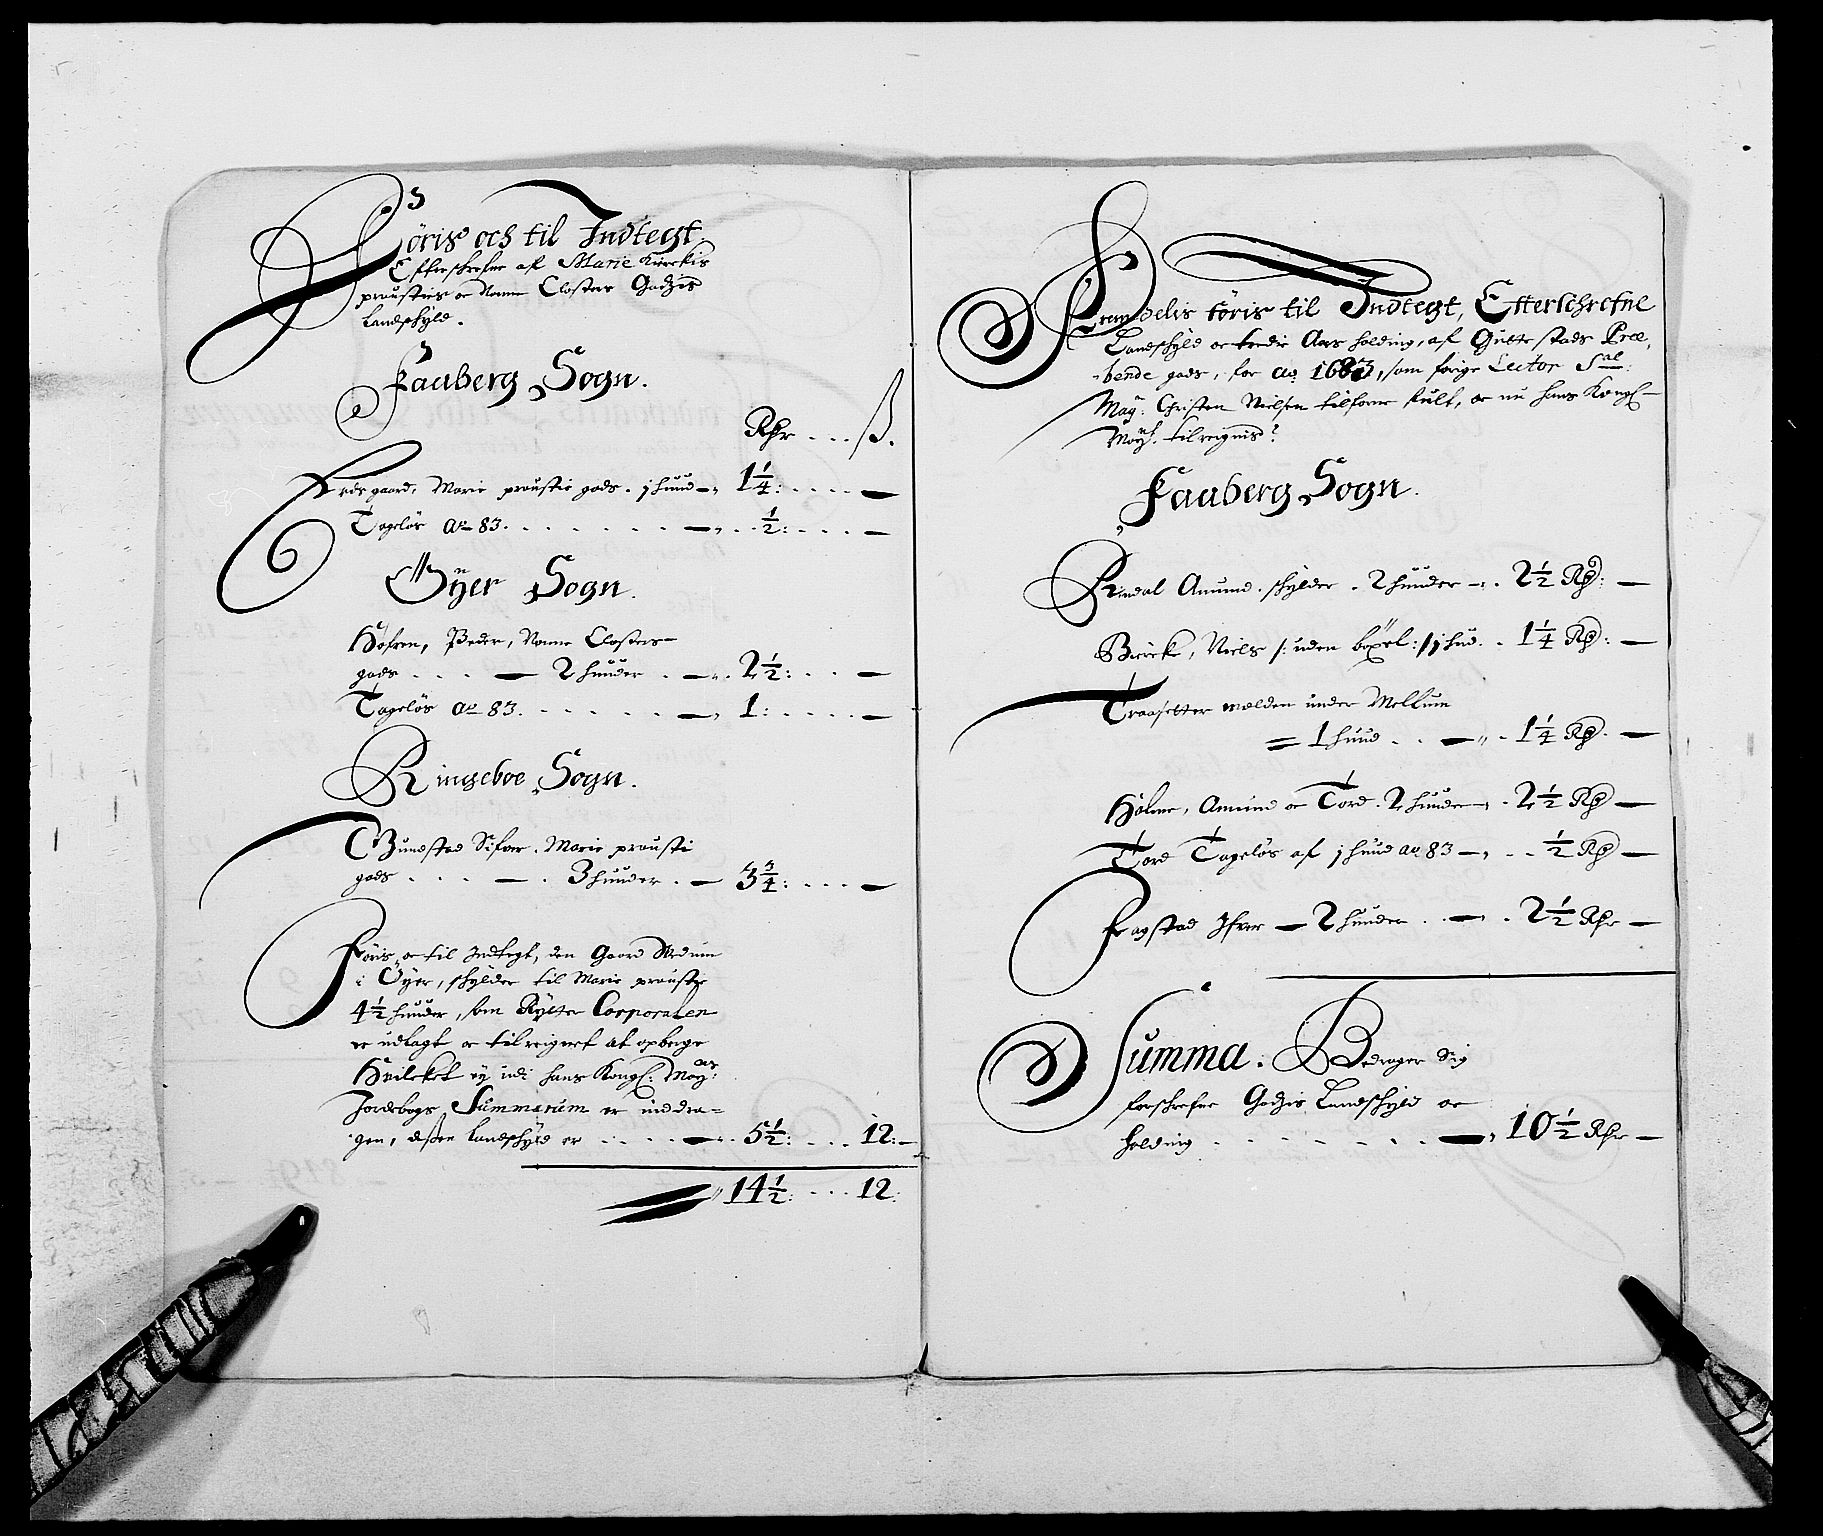 Föris och til Indtegt
Effterschrefne af Marie Kirckis
prousties oc Nonne Closter Godzis
Landschyld.
Faaberg Sogn.
Rdr . . . ß.
gaard, Marie proustie gods . j huud — 1 1/4 : . . . . —
Tageløs ao 83 . . . . . . — . . 1/2 : . . . . —
Öÿer Sogn.
Peder, Nonne Closters
gods . . . — 2 huuder . — . 2 1/2 : . . . —
Tageløs ao 83 . . . . . — 1 : . . . . —
Ringeboe Sogn.
Gundstad Sifver . Marie prousti
gods . . . . — . 3 huuder . — 3 3/4 : . . . —
Föris oc til Indtegt, den Gaard
i Öyer, schylder til Marie proustie
4 1/2 huuder, som Rytter Corporalen
er udlagt oc tilreignet at opberge
Hvilcket ey udi hans Kongl: Maÿts:
Jordebogs Summarum er inddra=
gen, dessen Landschyld er . . . . — . 5 1/2 : . . . 12 : —
14 1/2 : . . . 12 :
Fremdelis föris til Indtegt, Efterschrefne
Landschyld oc tredie Aars holding, af Præ,
bende gods, for ao 1683, som forige Lector Sal:
Mag: Christen Nielsen tilforne fult, oc nu hans Kongl
Maÿt. tilreignis
Faaberg Sogn.
Rindal Amund . schylder . 2 huuder — . 2 1/2 Rdr : —
Niels /: uden böxel :/ 1 hud . . 1 1/4 Rdr : —
under Mellum
= 1 huud . . — . 1 1/4 Rdr . —
Amund oc Tord . 2 huuder — . 2 1/2 Rdr —
Tord Tageløs af j huud ao 83 — . . 1/2 Rdr —
Ifver — 2 huuder . . — . 2 1/2 Rdr —
Summa . Bedrager Sig
forschrefne Godzis Landschyld oc
holding . . . . . . . — 10 1/2 Rdr —